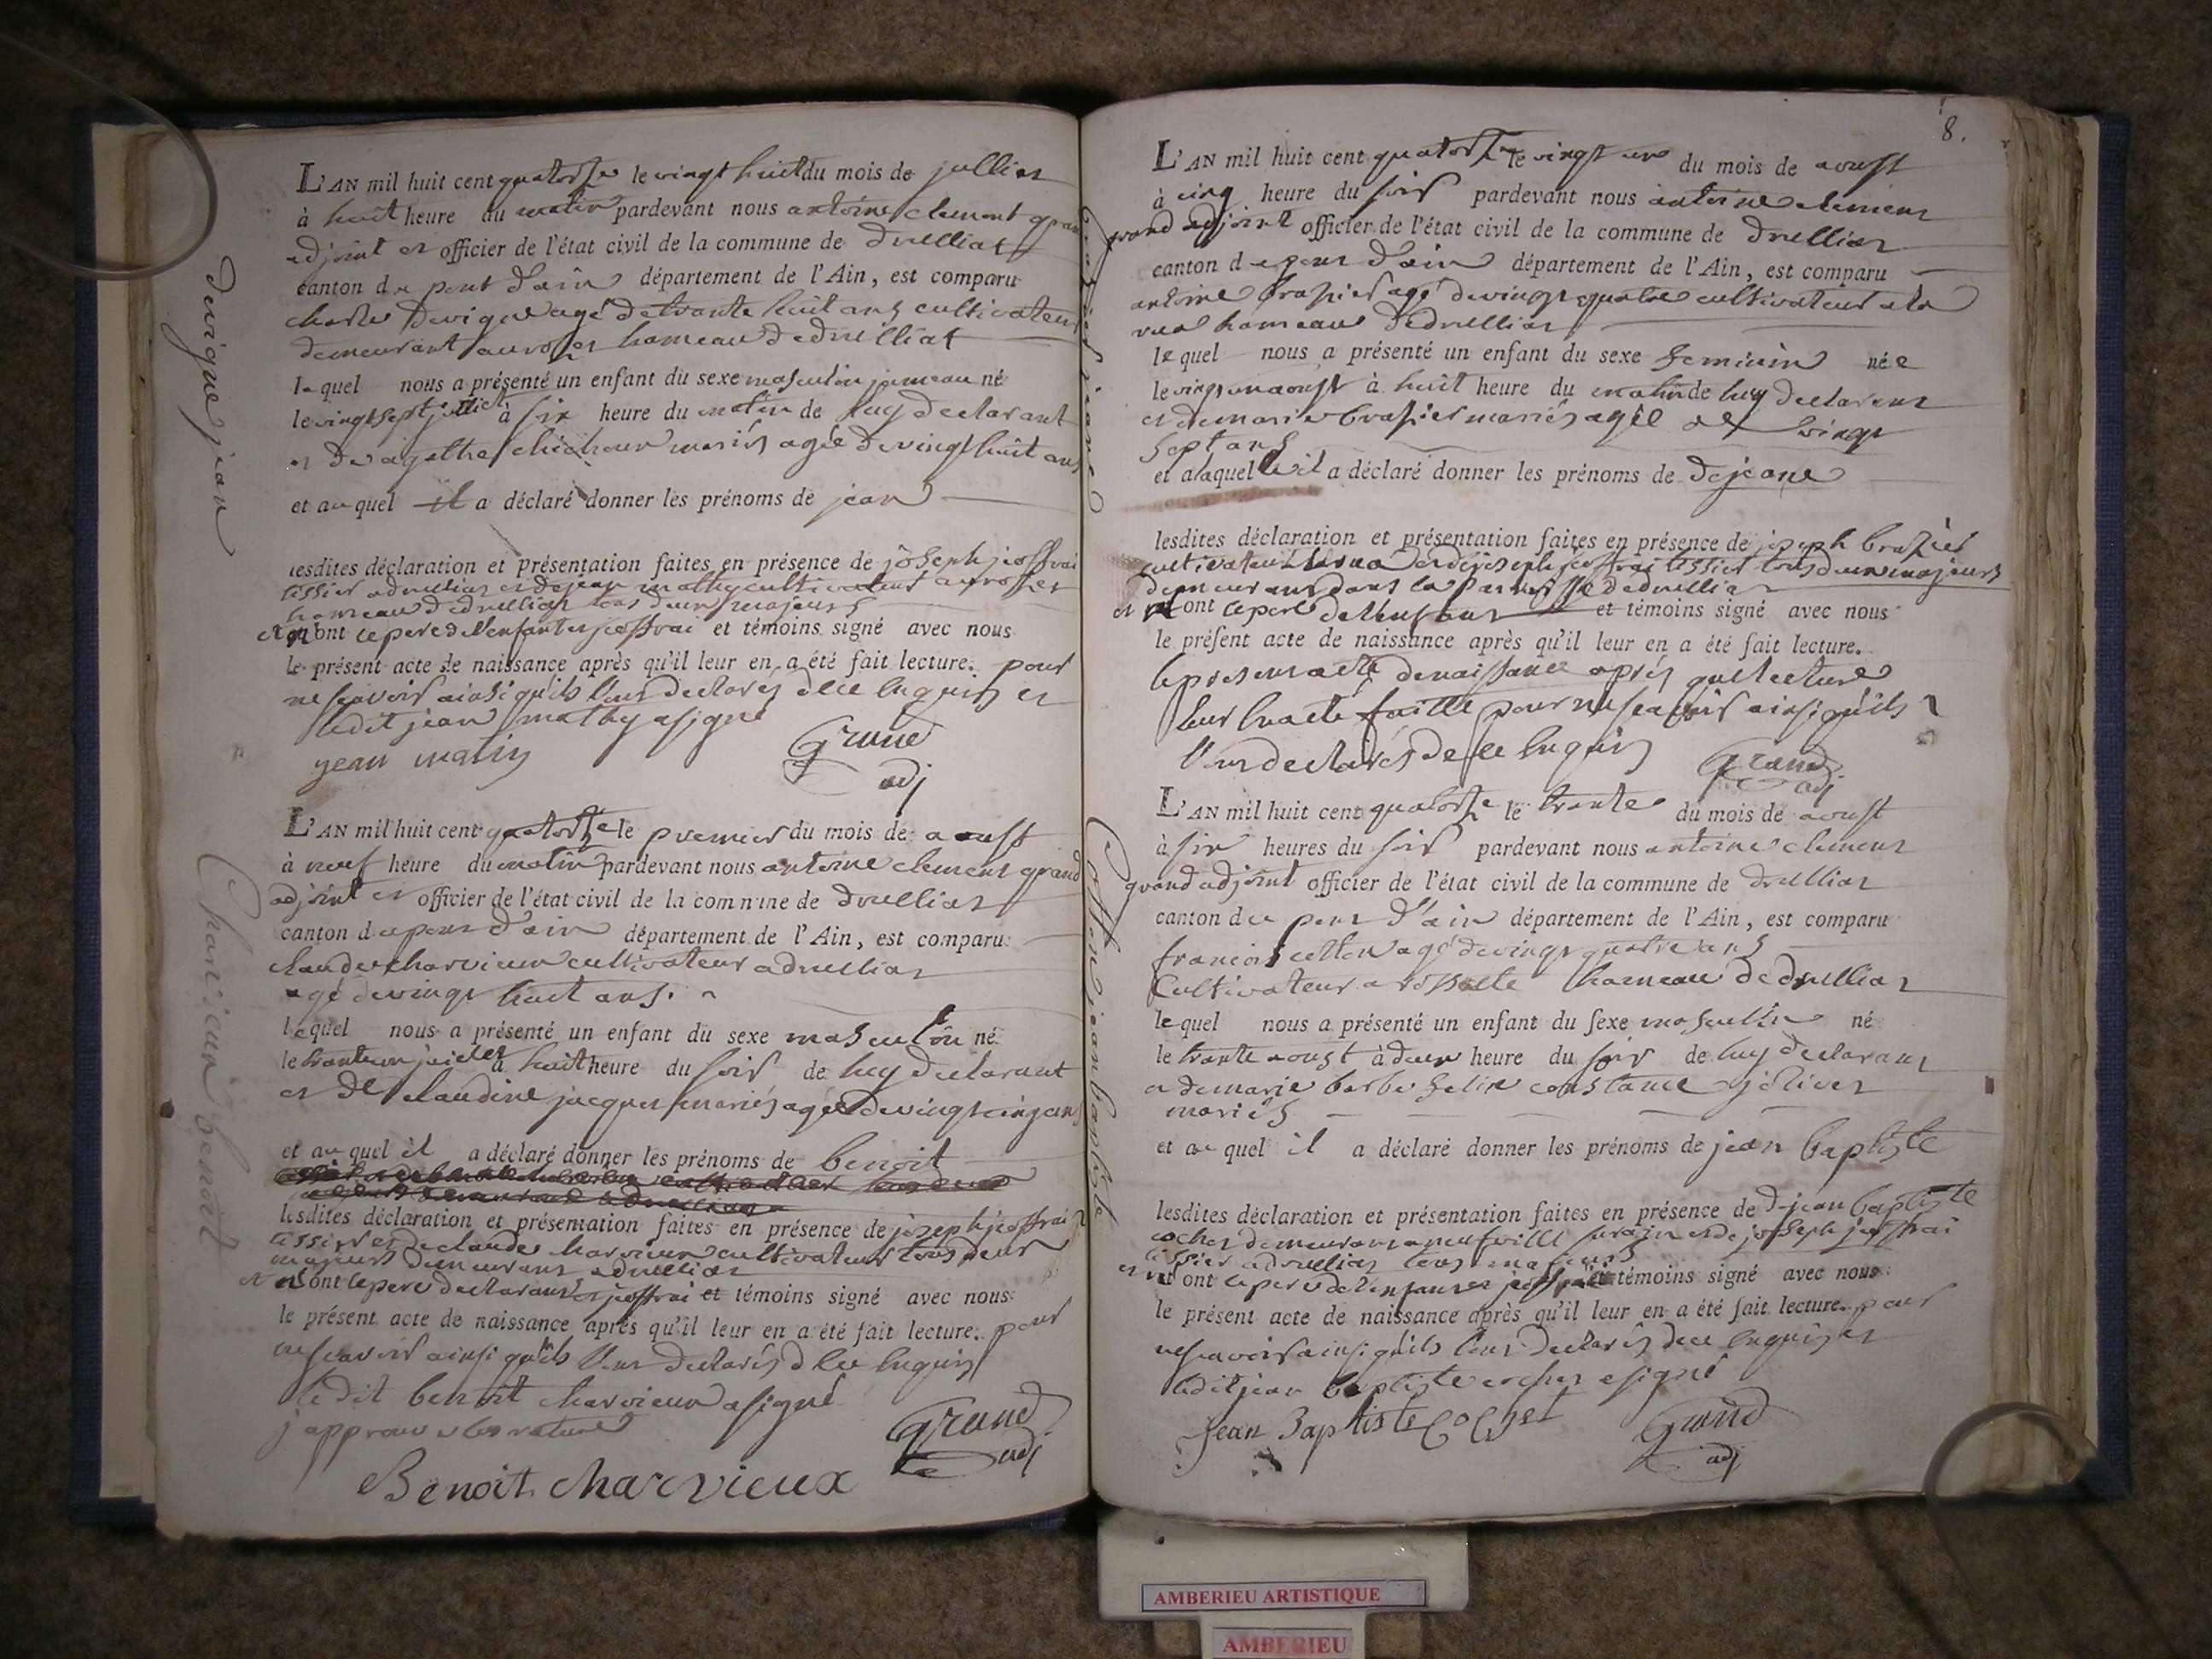 devigne jean
L'AN mil huit cent quatorze le vingt huit du mois de jullier
à huit heure du matin pardevant nous antoine clement gran
adjoint et officier de l'état civil de la commune de druilliat
canton de pont d'ain département de l'Ain, est comparu
charle devigne agé de trante huit ans cultivateur
demeurant au hameau de druilliat
lequel nous a présenté un enfant du sexe masculin jumeau né
le vingt sept juillet à six heure du matin de luy declarant
et de agathe mariés agée de vingt huit ans
et auquel il a déclaré donner les prénoms de jean
lesdites déclaration et présentation faites en présence de joseph jeoffrai
tissier a druillias et de jean mathy cultivateur
hameau de druillias tous deux majeurs
et n ont le pere de l'enfant et jeoffrai et témoins signé avec nous
le présent acte de naissance après qu'il leur en a été fait lecture. pour
ne scavoir ainsi qu'ils l'ons declarés de ce enquis et
ledit jean mathy a signé
jean Grand
adj
Charvieux benoit
L'AN mil huit cent quatorze le premier du mois de aoust
à neuf heure du matin pardevant nous antoine clement grand
adjoint et officier de l'état civil de la commune de druillias
canton de pont d'ain département de l'Ain, est comparu
claude charvieux cultivateur a druillias
agé de vingt huit ans.
lequel nous a présenté un enfant du sexe masculin né
le trante un juiellet à huit heure du soir de luy declarant
et de Claudine jacquet mariés agée de vingt cinq ans
et auquel il a déclaré donner les prénoms de benoit
lesdites déclaration et présentation faites en présence de joseph jeoffrai
tissier et de claude charvieux cultivateur tous deux
majeurs demeurant a druillias
et n ont le pere declarant et jeoffrai et témoins signé avec nous
le présent acte de naissance après qu'il leur en a été fait lecture. pour
ne scavoir ainsi qu'ils l'ons declarés de ce enquis
ledit benoit charvieux a signé
japprouve les ratures
Grand
adj
Benoit charvieux
8.
jeane
L'AN mil huit cent quatorze le vingt un du mois de aoust
à cinq heure du soir pardevant nous antoine clement
grand adjoint officier de l'état civil de la commune de druillias
canton de pont d'ain département de l'Ain, est comparu
antoine brasier agé de vingt quatre cultivateur a la
rua hameau de druillias
lequel nous a présenté un enfant du sexe feminin née
le vingt un aoust à huit heure du matin de luy declarant
et de marie brasier mariés agée de vingt
sept ans
et a laquelle il a déclaré donner les prénoms de de jeane
lesdites déclaration et présentation faites en présence de joseph brasier
cultivateur et de joseph jeoffrai tissier tous deux majeurs
demeurant dans la de druillia
et n ont le pere de l'enfant et témoins signé avec nous
le présent acte de naissance après qu'il leur en a été fait lecture.
le present acte de naissance aprés que lecture
leur en a été faitte pour ne scavoir ainsi qu'ils
l'ons declarés de ce enquis
Grand
adj
Cotton jean baptiste
L'AN mil huit cent quatorze le trante du mois de aoust
à six heures du soir pardevant nous antoine clement
grand adjoint officier de l'état civil de la commune de druillias
canton de pont d'ain département de l'Ain, est comparu
francois cotton agé de vingt quatre ans
Cultivateur a hameau de druillias
lequel nous a présenté un enfant du sexe masculin né
le trante aoust à deux heure du soir de luy declarant
et de marie barbe constance
mariés
et auquel il a déclaré donner les prénoms de jean baptiste
lesdites déclaration et présentation faites en présence de de jean baptiste
cochet demeurant a neufville et de joseph jeoffrai
tissier a druillias tous majeurs
et n ont le pere de l'enfant et jeoffrai et témoins signé avec nous
le présent acte de naissance après qu'il leur en a été fait lecture. pour
ne scavoir ainsi qu'ils l'ons declarés de ce enquis et
ledit jean baptiste cochet a signé
Jean Baptiste Cochet Grand
adj
AMBERIEU ARTISTIQUE
AMBERIEU